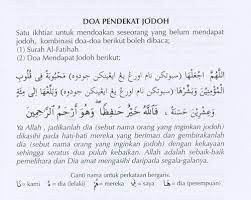 DOA PENDEKAT JODOH
Satu ikhtiar untuk mendoakan seseorang yang belum mendapat
jodoh, kombinasi doa-doa berikut boleh dibaca;
(1) Surah Al-Fatihah
(2) Doa Mendapat Jodoh berikut:
اللَّهُمَّ اجْعَلْهَا (سبوتكن نام اورغ يڠ ايڠينكن جودوه) مَحْبُوبَةً فِي قُلُوبِ
الْمُؤْمِنِينَ وَبَشِّرْهَا (سبوتكن نام اورغ يڠ ايڠينكن جودوه)
وَعِشْرِينَ حَسَنَةً، فَاللَّهُ خَيْرٌ حَفِظًا وَهُوَ أَرْحَمُ الرَّاحِمِينَ
Ya Allah, jadikanlah dia (sebut nama orang yang inginkan jodoh)
dikasihi pada hati-hati mereka yang beriman dan gembirakanlah dia
(sebut nama orang yang inginkan jodoh berkenaan) dengan kekayaan
sehingga seratus dua puluh kebaikan. Allah adalah sebaik-baik
pemelihara dan Dia amat mengasihi daripada segala-galanya.
Ganti nama untuk perkataan bergaris:
نَا= kami هُ= dia (lelaki) هُمْ= mereka ي= saya هَا= dia (perempuan)